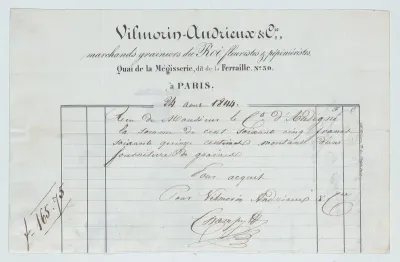 Vilmorin-Andrieux & Cie,
marchands grainiers du Roi fleuristes & pépiniéristes.
Quai de la Mégisserie, dit de la Ferraille, No. 30.
à PARIS.
1844.
Reçu de Monsieur le Cte d'
la somme de cent soixante cinq francs
soixante quinze centimes montant d'une
fourniture de graines
Pour acquit
Pour Vilmorin Andrieux & Cie
f. 165.75